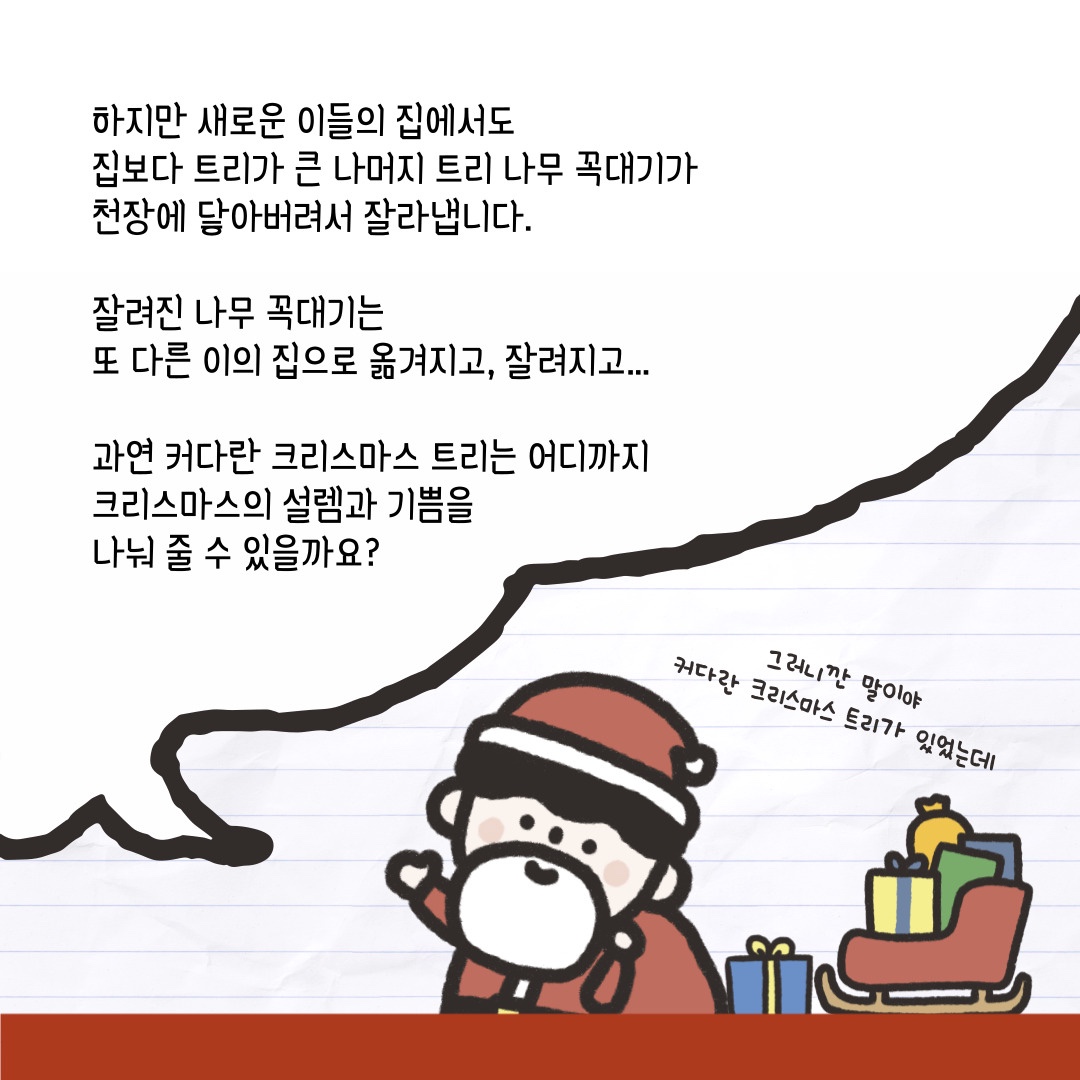 하지만 새로운 이들의 집에서도
집보다 트리가 큰 나머지 트리 나무 꼭대기가
천장에 닿아버려서 잘라냅니다.
잘려진 나무 꼭대기는
또 다른 이의 집으로 옮겨지고, 잘려지고...
과연 커다란 크리스마스 트리는 어디까지
크리스마스의 설렘과 기쁨을
나눠 줄 수 있을까요?
그러니깐 말이야
커다란 크리스마스 트리가 있었는데